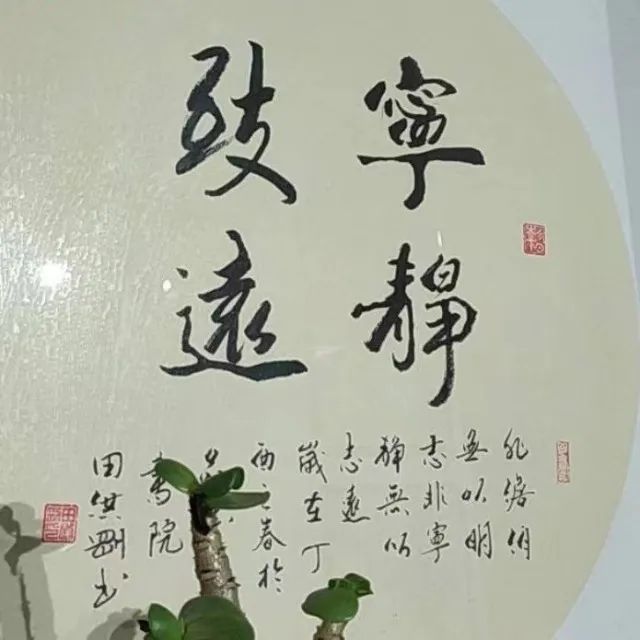 寧靜
致遠
非澹泊
無以明
志非寧
靜無以
志遠
歲在丁
酉之春於
書院
田剛书